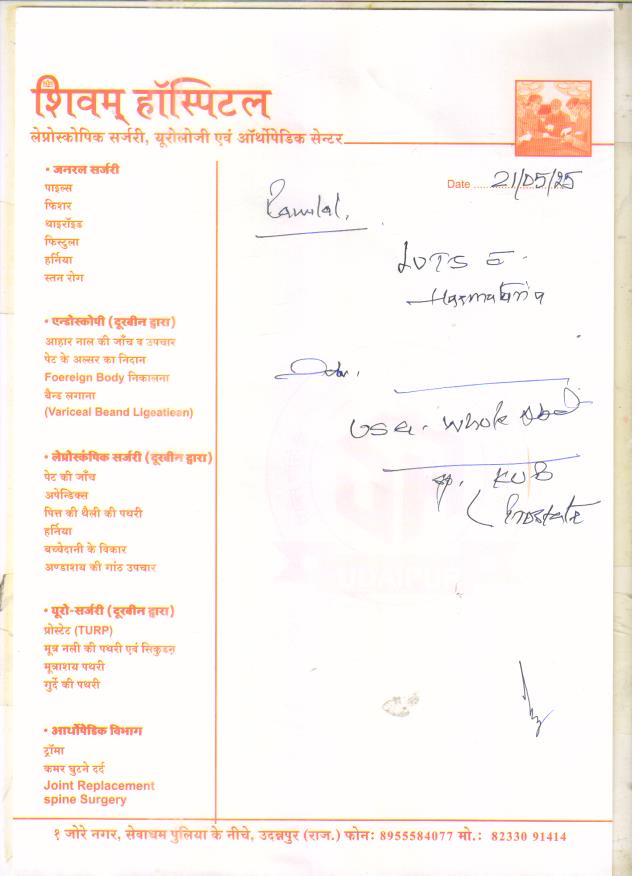 शिवम् हॉस्पिटल
लेप्रोस्कोपिक सर्जरी, यूरोलोजी एवं ऑर्थोपेडिक सेन्टर
Date ........ 21/05/25
• जनरल सर्जरी
पाइल्स
फिशर
थाइरॉइड
फिस्टुला
हर्निया
स्तन रोग
• एन्डोस्कोपी (दूरबीन द्वारा)
आहार नाल की जाँच व उपचार
पेट के अल्सर का निदान
Foereign Body निकालना
बैन्ड लगाना
(Variceal Beand Ligeatiean)
• लेप्रोस्कंपिक सर्जरी (दूरबीन द्वारा)
पेट की जाँच
अपेन्डिक्स
पित्त की थैली की पथरी
हर्निया
बच्चेदानी के विकार
अण्डाशय की गांठ उपचार
• यूरो-सर्जरी (दूरबीन द्वारा)
प्रोस्टेट (TURP)
मूत्र नली की पथरी एवं सिकुडन
मूत्राशय पथरी
गुर्दे की पथरी
• आर्थोपेडिक विभाग
ट्रॉमा
कमर घुटने दर्द
Joint Replacement
spine Surgery
Ramlal,
LUTS c̄
Haematuria
Adv.
USG - Whole Abd
KUB
Prostate
१ जोरे नगर, सेवाधम पुलिया के नीचे, उदन्नपुर (राज.) फोनः 8955584077 मो.: 82330 91414